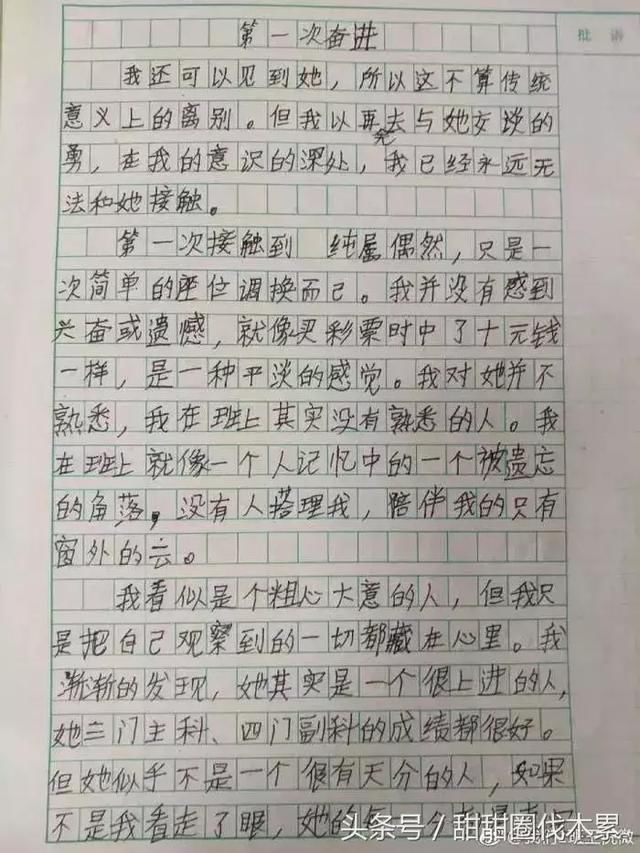 批语
第一次奋进
我还可以见到她，所以这不算传统
意义上的离别。但我以再去与她交谈的
勇，在我的意识的深处，我已经永远无
法和她接触。
第一次接触到 纯属偶然，只是一
次简单的座位调换而已。我并没有感到
兴奋或遗憾，就像买彩票时中了十元钱
一样，是一种平淡的感觉。我对她并不
熟悉，我在班上其实没有熟悉的人。我
在班上就像一个人记忆中的一个被遗忘
的角落，没有人搭理我，陪伴我的只有
窗外的云。
我看似是个粗心大意的人，但我只
是把自己观察到的一切都藏在心里。我
渐渐的发现，她其实是一个很上进的人，
她三门主科、四门副科的成绩都很好。
但她似乎不是一个很有天分的人，如果
不是我看走了眼，她的每一
头条号/甜甜圈伐木累